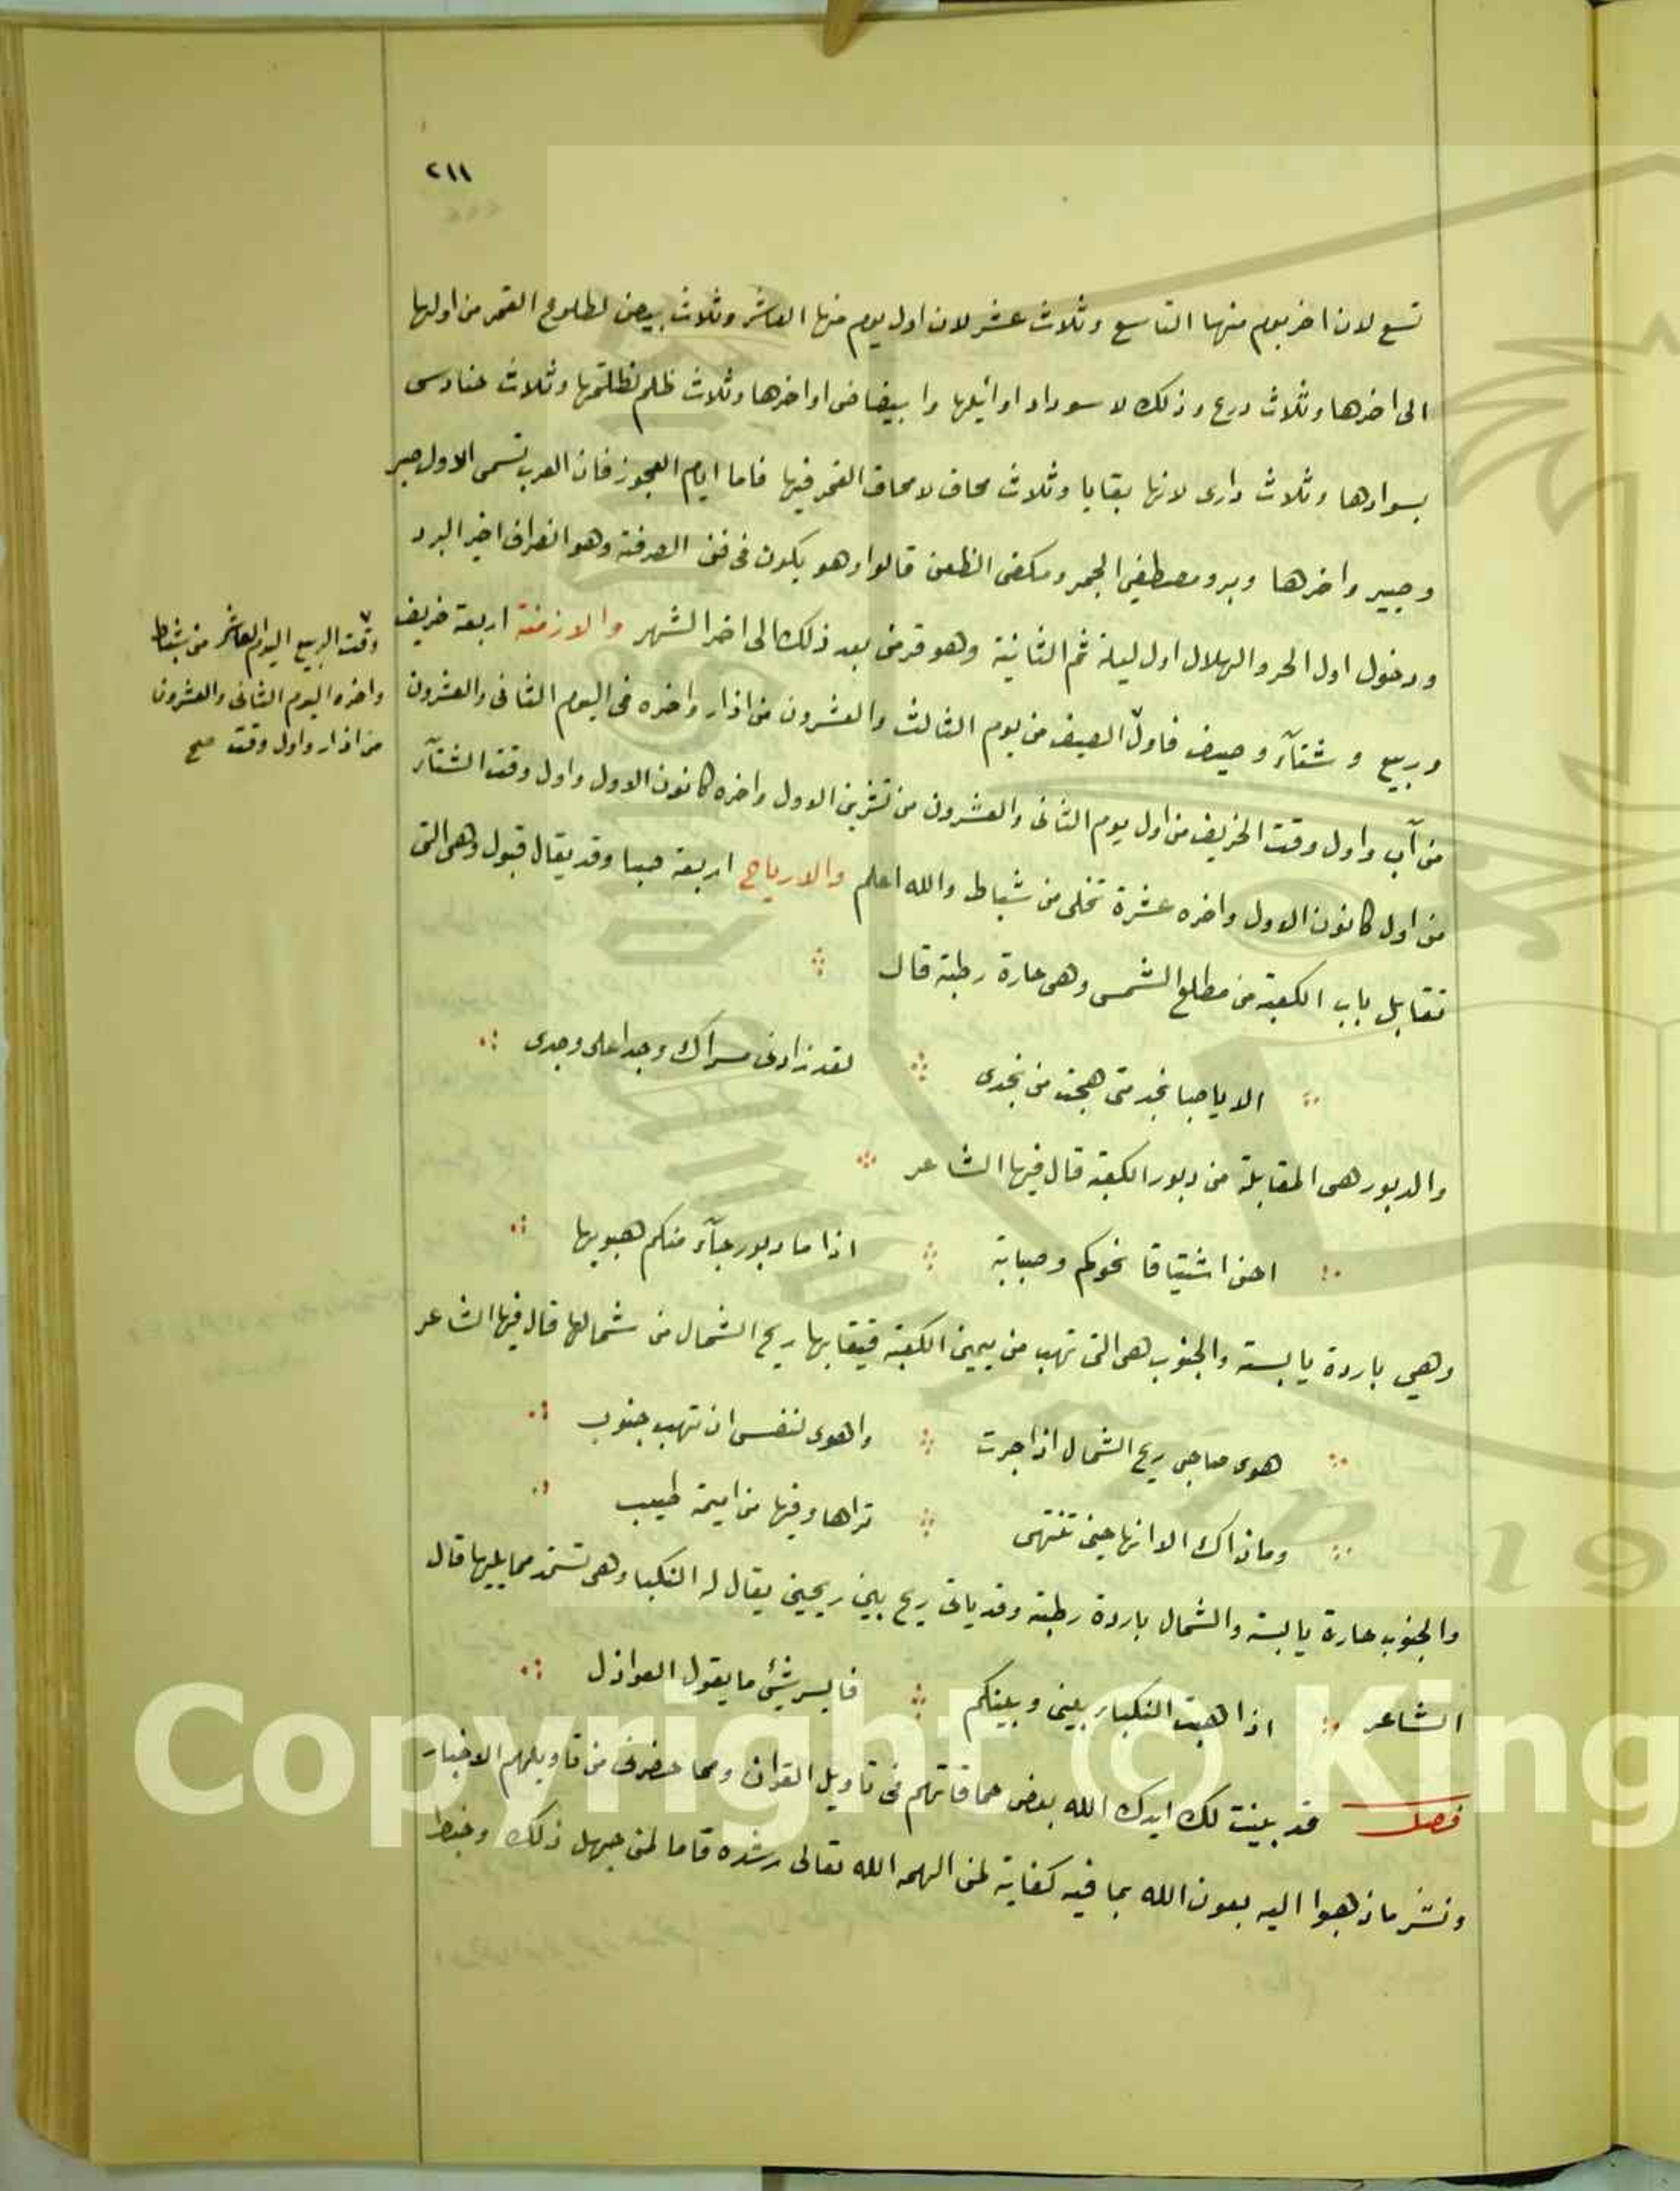 ٢١١
تسع لان اخر يوم منها التاسع وثلاث عشر لان اول يوم منها العاشر وثلاث بيض لطلوع القمر من اولها
الى اخرها وثلاث درع وذلك لاسوداد اوائلها وابيضاض اواخرها وثلاث ظلم لظلمتها وثلاث حنادس
بسوادها وثلاث دارى لانها بقايا وثلاث محاق لامحاق القمر فيها فاما ايام العجوز فان العرب تسمى الاول صبر
وصبير واخرها وبر ومصطفي الجمر ومكفى الظعن قالوا وهو يكون فى الصرفة وهو انصراف اخير البرد
ودخول اول الحر والهلال اول ليلة ثم الثانية وهو قرمن بعد ذلك الى اخر الشهر والازمنة اربعة خريف
وربيع وشتآء وصيف فاول الصيف من يوم الثالث والعشرون من اذار واخره فى اليوم الثانى والعشرون
من آب واول وقت الخريف من اول يوم الثانى والعشرون من تشرين الاول واخره كانون الاول واول وقت الشتآء
من اول كانون الاول واخره عشرة تخلى من شباط والله اعلم والارياح اربعة صبا وقد يقال قبول وهى التى
وقت الربيع اليوم العاشر من شباط
واخره اليوم الثانى والعشرون
من اذار واول وقت صح
تقابل باب الكعبة من مطلع الشمس وهى حارة رطبة قال
الا يا صبا نجد متى هجت من نجدى لقد زادنى مسراك وجدا على وجدى
والدبور هى المقابلة من دبور الكعبة قال فيها الشاعر
احن اشتياقا نحوكم وصبابة اذا ما دبور جآء منكم هبوبها
وهي باردة يابسة والجنوب هى التى تهب من يمين الكعبة فيقابها ريح الشمال من شمالها قال فيها الشاعر
هوى صاحبى ريح الشمال اذا جرت واهوى لنفسى ان تهب جنوب
وماذاك الا انها حين تنتهى تراها وفيها من اميمة طيب
والجنوب حارة يابسة والشمال باردة رطبة وقد ياتى ريح بين ريحين يقال له النكبا وهى تستمد مما يليها قال
الشاعر اذا هبت النكبا بينى وبينكم فايسر شئ ما يقول العواذل
فصل قد بينت لك ايدك الله بعض حماقاتهم فى تاويل القران ومما حضرنى من تاويلهم الاخبار
ونشر ما ذهبوا اليه بعون الله بما فيه كفاية لمن الهمه الله تعالى رشده فاما لمن جهل ذلك وخبط
Copyright © King